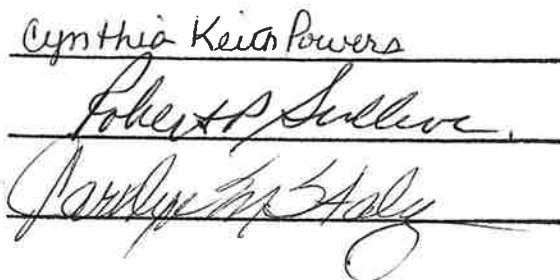 Cynthia Keith Powers
Robert P. Sullivan
Carolyn M. Staley